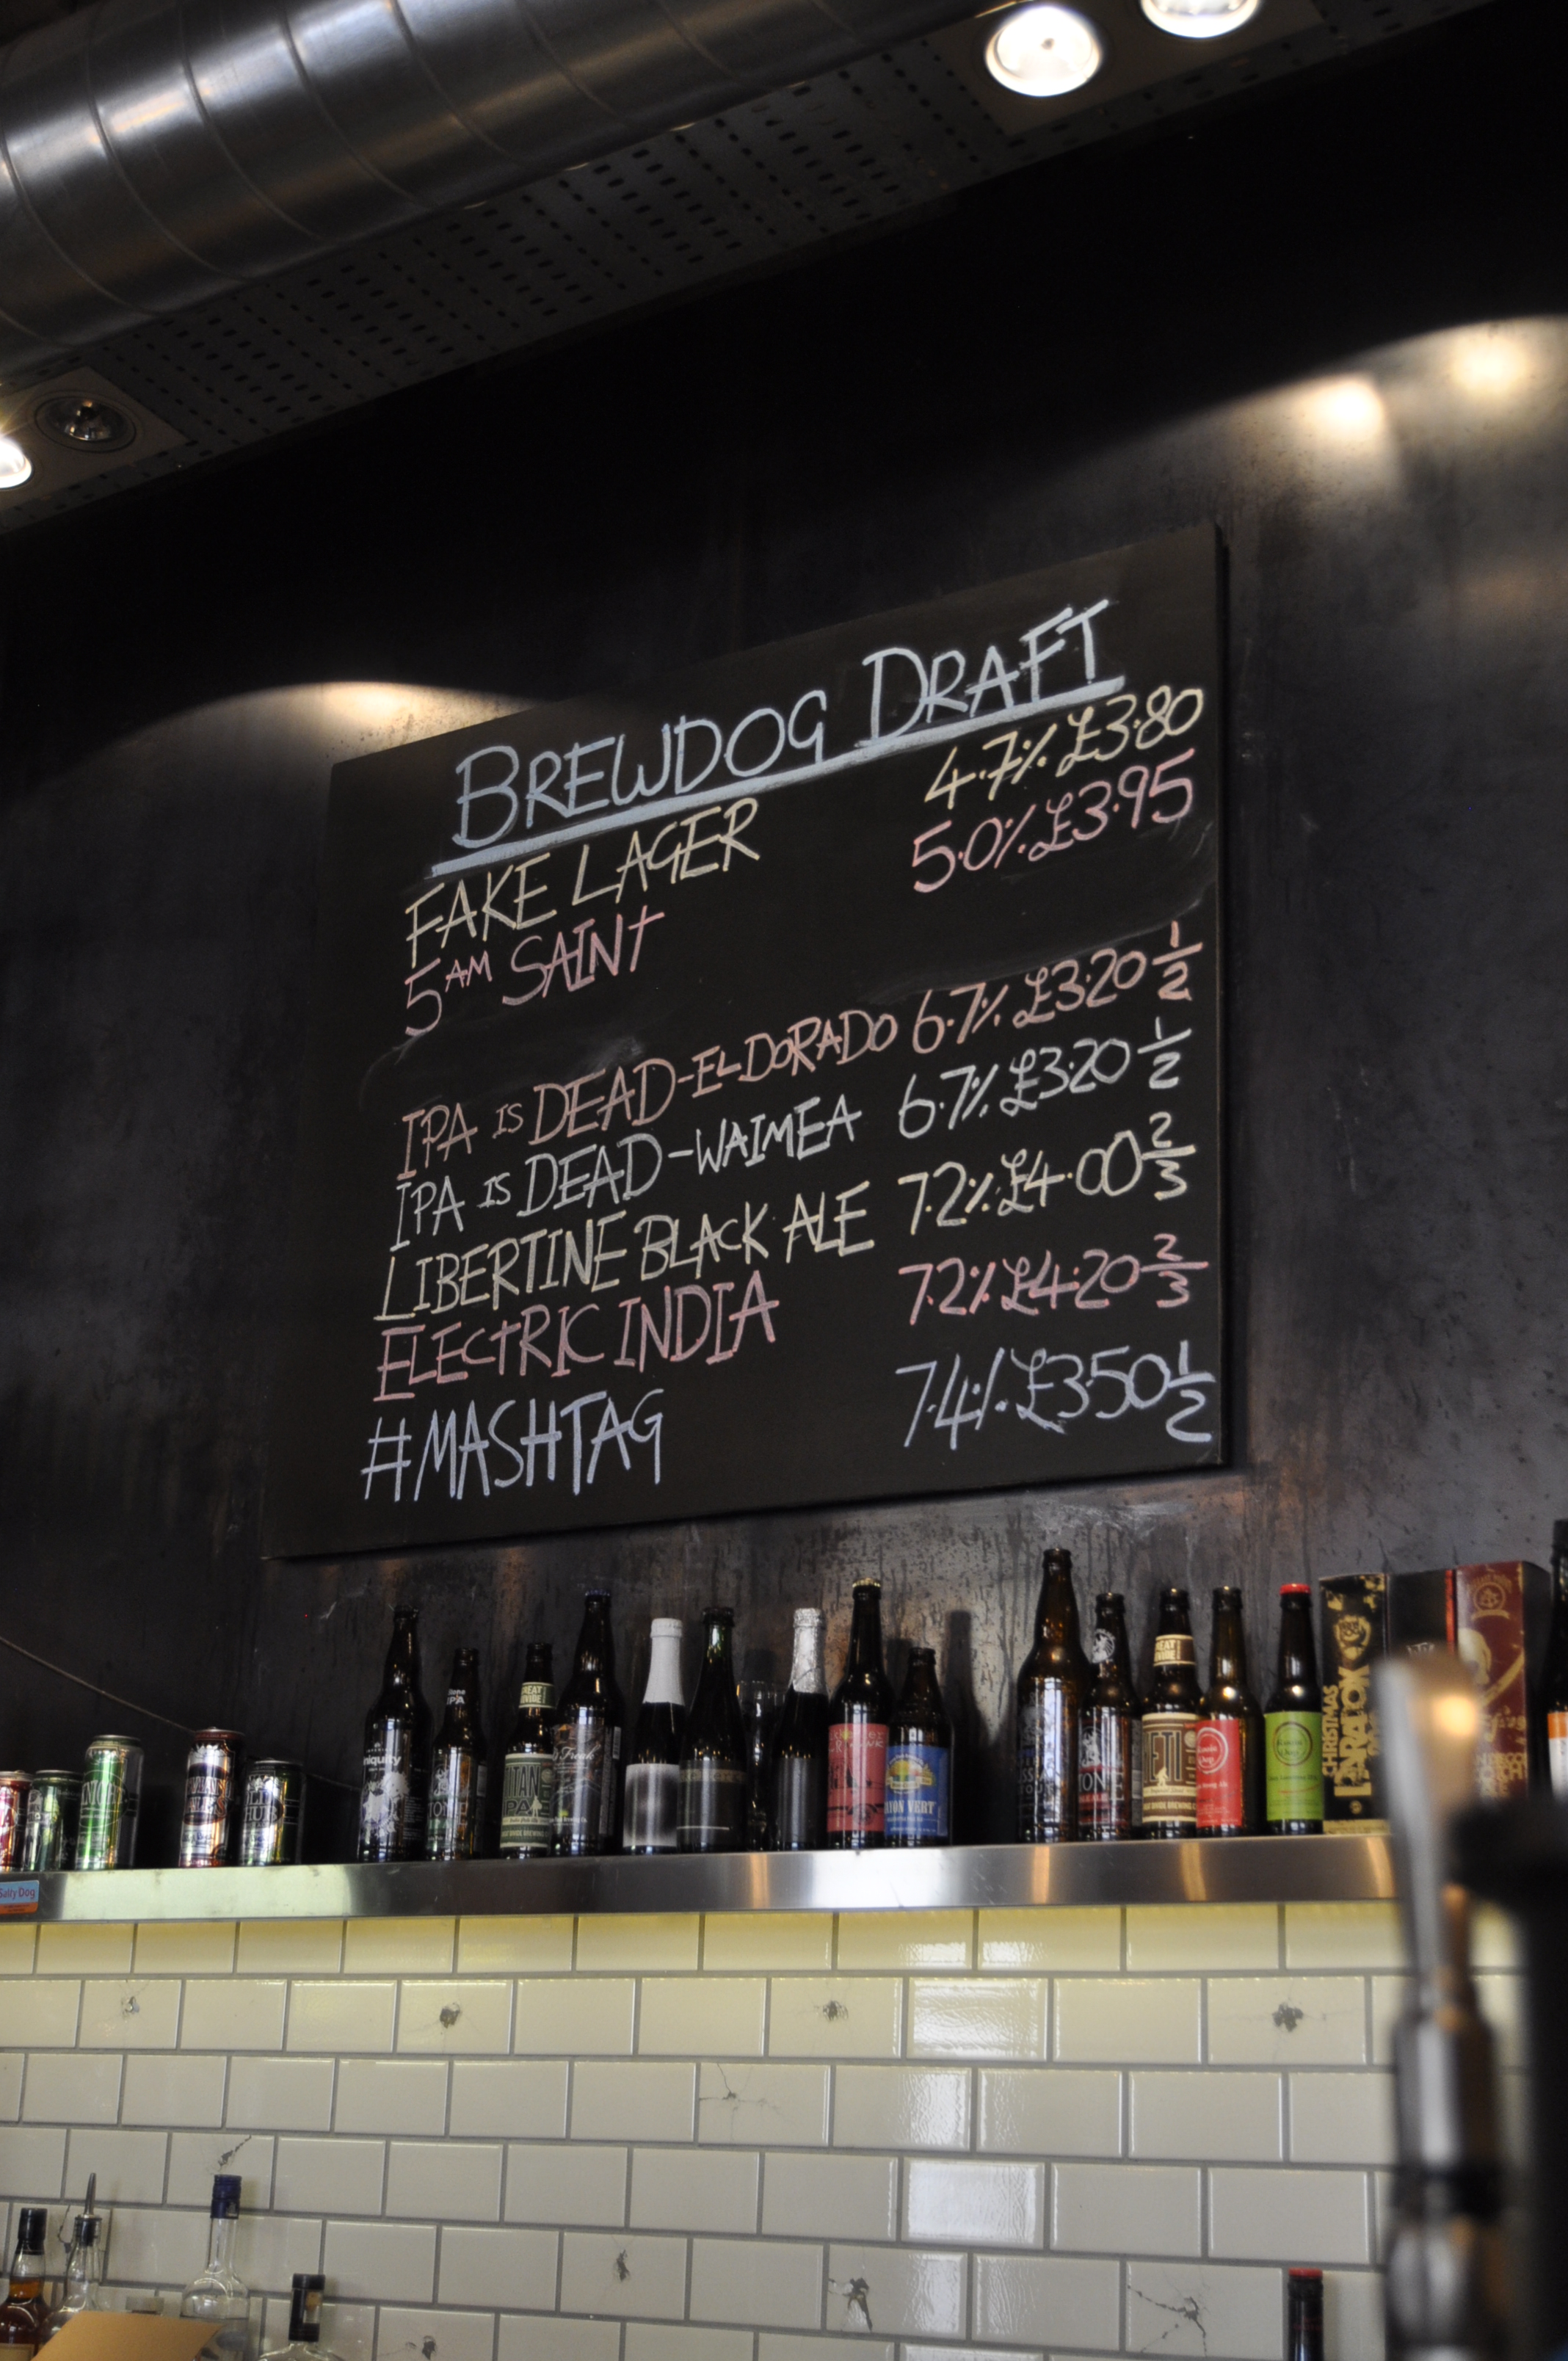 BREWDOG DRAFT
FAKE LAGER 4.7% £3.80
5AM SAINT 5.0% £3.95
IPA IS DEAD-EL DORADO 6.7% £3.20 1/2
IPA IS DEAD-WAIMEA 6.7% £3.20 1/2
LIBERTINE BLACK ALE 7.2% £4.00 2/3
ELECTRIC INDIA 7.2% £4.20 2/3
#MASHTAG 7.4% £3.50 1/2
IPA
GREAT
TITAN
IPA
GREAT
CHRISTMAS
PARADOX
Salty Dog